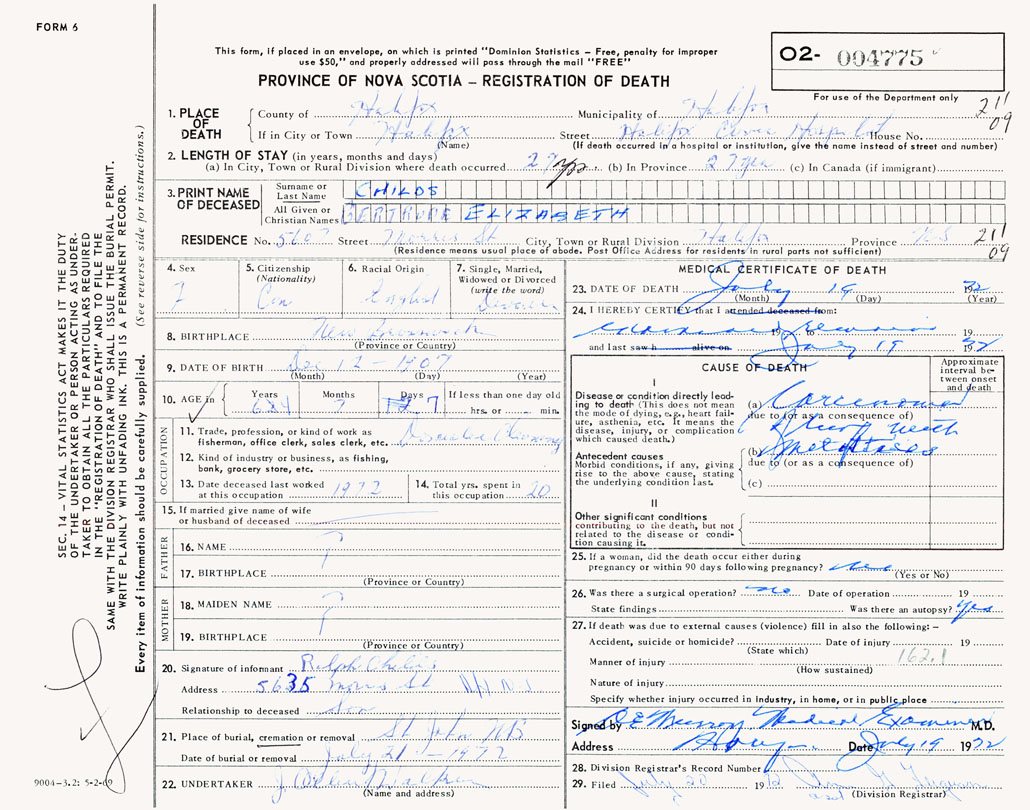 FORM 6
This form, if placed in an envelope, on which is printed "Dominion Statistics – Free, penalty for improper
use $50," and properly addressed will pass through the mail "FREE"
PROVINCE OF NOVA SCOTIA – REGISTRATION OF DEATH
02- 004775
For use of the Department only
1. PLACE OF DEATH
County of Halifax Municipality of Halifax
211
09
If in City or Town Halifax Street Halifax Civic Hospital House No.
(Name) (If death occurred in a hospital or institution, give the name instead of street and number)
2. LENGTH OF STAY (in years, months and days)
(a) In City, Town or Rural Division where death occurred 27 yrs (b) In Province 27 yrs (c) In Canada (if immigrant)
3. PRINT NAME OF DECEASED
Surname or Last Name CHILDS
All Given or Christian Names GERTRUDE ELIZABETH
RESIDENCE No. 5607 Street Morris St City, Town or Rural Division Halifax Province N.S
211
09
(Residence means usual place of abode. Post Office Address for residents in rural parts not sufficient)
4. Sex F
5. Citizenship (Nationality) Can
6. Racial Origin English
7. Single, Married, Widowed or Divorced (write the word) Divorced
8. BIRTHPLACE New Brunswick
(Province or Country)
9. DATE OF BIRTH Dec 12 1907
(Month) (Day) (Year)
10. AGE in Years 64 Months 7 Days 7 If less than one day old hrs. or min.
OCCUPATION
11. Trade, profession, or kind of work as
fisherman, office clerk, sales clerk, etc.
12. Kind of industry or business, as fishing,
bank, grocery store, etc.
13. Date deceased last worked at this occupation 1972
14. Total yrs. spent in this occupation 20
15. If married give name of wife
or husband of deceased
FATHER
16. NAME ?
17. BIRTHPLACE
(Province or Country)
MOTHER
18. MAIDEN NAME ?
19. BIRTHPLACE
(Province or Country)
20. Signature of informant Ralph Childs
Address 5635 Morris St
Relationship to deceased Son
21. Place of burial, cremation or removal St John NB
Date of burial or removal July 21 - 1972
22. UNDERTAKER
(Name and address)
MEDICAL CERTIFICATE OF DEATH
23. DATE OF DEATH July 19 1972
(Month) (Day) (Year)
24. I HEREBY CERTIFY that I attended deceased from:
19 to 19
and last saw h alive on July 19 1972
CAUSE OF DEATH
Approximate interval between onset and death
I
Disease or condition directly leading to death (This does not mean the mode of dying, e.g., heart failure, asthenia, etc. It means the disease, injury, or complication which caused death.)
(a) Carcinoma
due to (or as a consequence of)
of lung with
Antecedent causes
Morbid conditions, if any, giving rise to the above cause, stating the underlying condition last.
(b) metastases
due to (or as a consequence of)
(c)
II
Other significant conditions
contributing to the death, but not related to the disease or condition causing it.
25. If a woman, did the death occur either during
pregnancy or within 90 days following pregnancy?
(Yes or No)
26. Was there a surgical operation? no Date of operation 19
State findings Was there an autopsy? yes
27. If death was due to external causes (violence) fill in also the following: –
Accident, suicide or homicide? Date of injury 19
(State which)
Manner of injury 162.1
(How sustained)
Nature of injury
Specify whether injury occurred in industry, in home, or in public place
Signed by Medical Examiner M.D.
Address Date July 19 1972
28. Division Registrar's Record Number
29. Filed July 20 19
(Division Registrar)
SEC. 14 – VITAL STATISTICS ACT MAKES IT THE DUTY
OF THE UNDERTAKER OR PERSON ACTING AS UNDER-
TAKER TO OBTAIN ALL THE PARTICULARS REQUIRED
IN THE "REGISTRATION OF DEATH" AND TO FILE THE
SAME WITH THE DIVISION REGISTRAR WHO SHALL ISSUE THE BURIAL PERMIT.
WRITE PLAINLY WITH UNFADING INK. THIS IS A PERMANENT RECORD.
Every item of information should be carefully supplied. (See reverse side for instructions.)
9004-3.2: 5-2-69